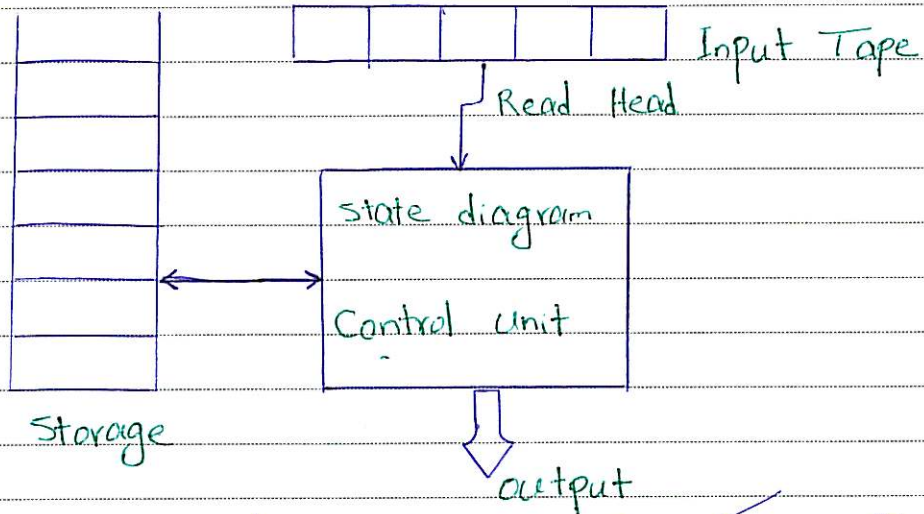 Input Tape
Read Head
State diagram
Control Unit
Storage
output